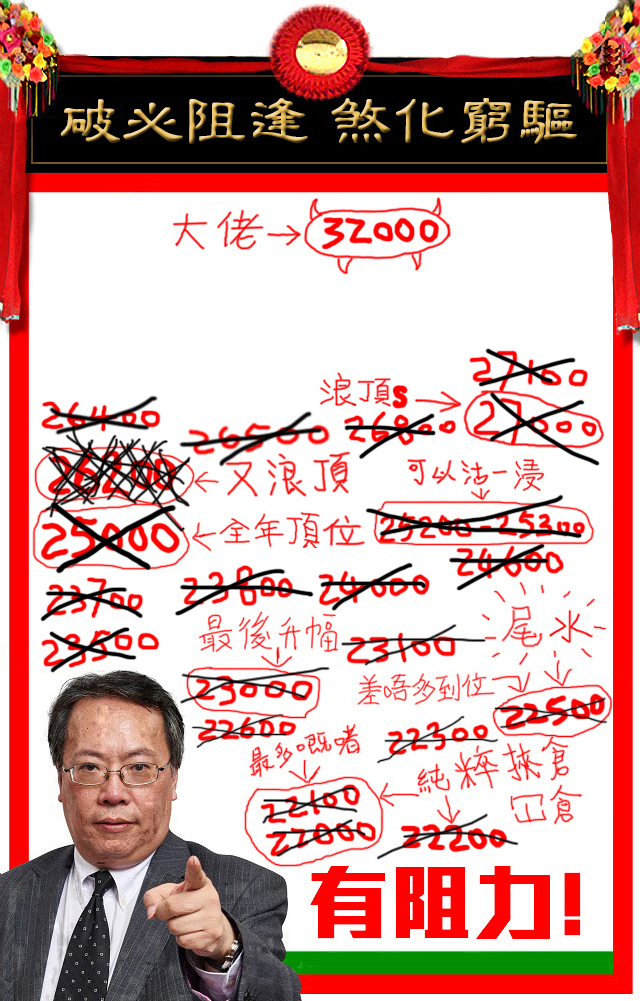 破必阻逢 煞化窮驅
大佬→32000
27100
浪頂s→27000
26400
26500
26800
26200←又浪頂
可以沽一浸
25000←全年頂位
25200-25300
24600
23700
23800
24000
23500
最後升幅
23100
尾水
23000
差唔多到位
22500
22600
22300
最多嘅者
純粹挾倉
冚倉
22100
22000
22200
有阻力!